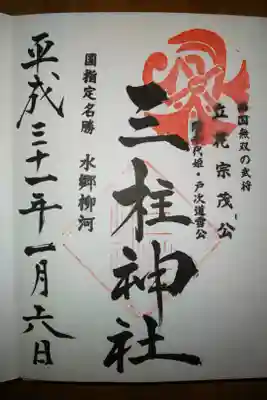 西国無双の武将
立花宗茂公
誾千代姫・戸次道雪公
三柱神社
國指定名勝 水郷柳河
平成三十一年一月六日